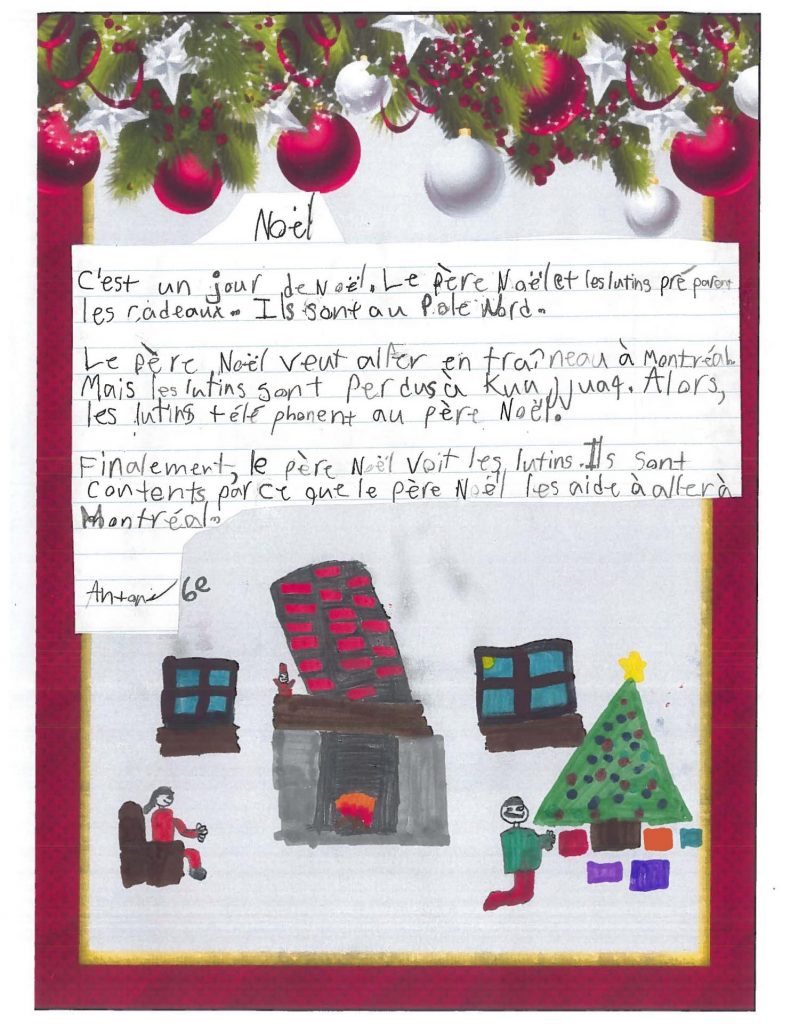 Noël
C'est un jour de Noël. Le père Noël et les lutins préparent
les cadeaux. Ils sont au Pole Nord.
Le père Noël veut aller en traîneau à Montréal.
Mais les lutins sont perdus à Kuujjuaq. Alors,
les lutins téléphonent au père Noël.
Finalement, le père Noël voit les lutins. Ils sont
contents parce que le père Noël les aide à aller à
Montréal.
6e